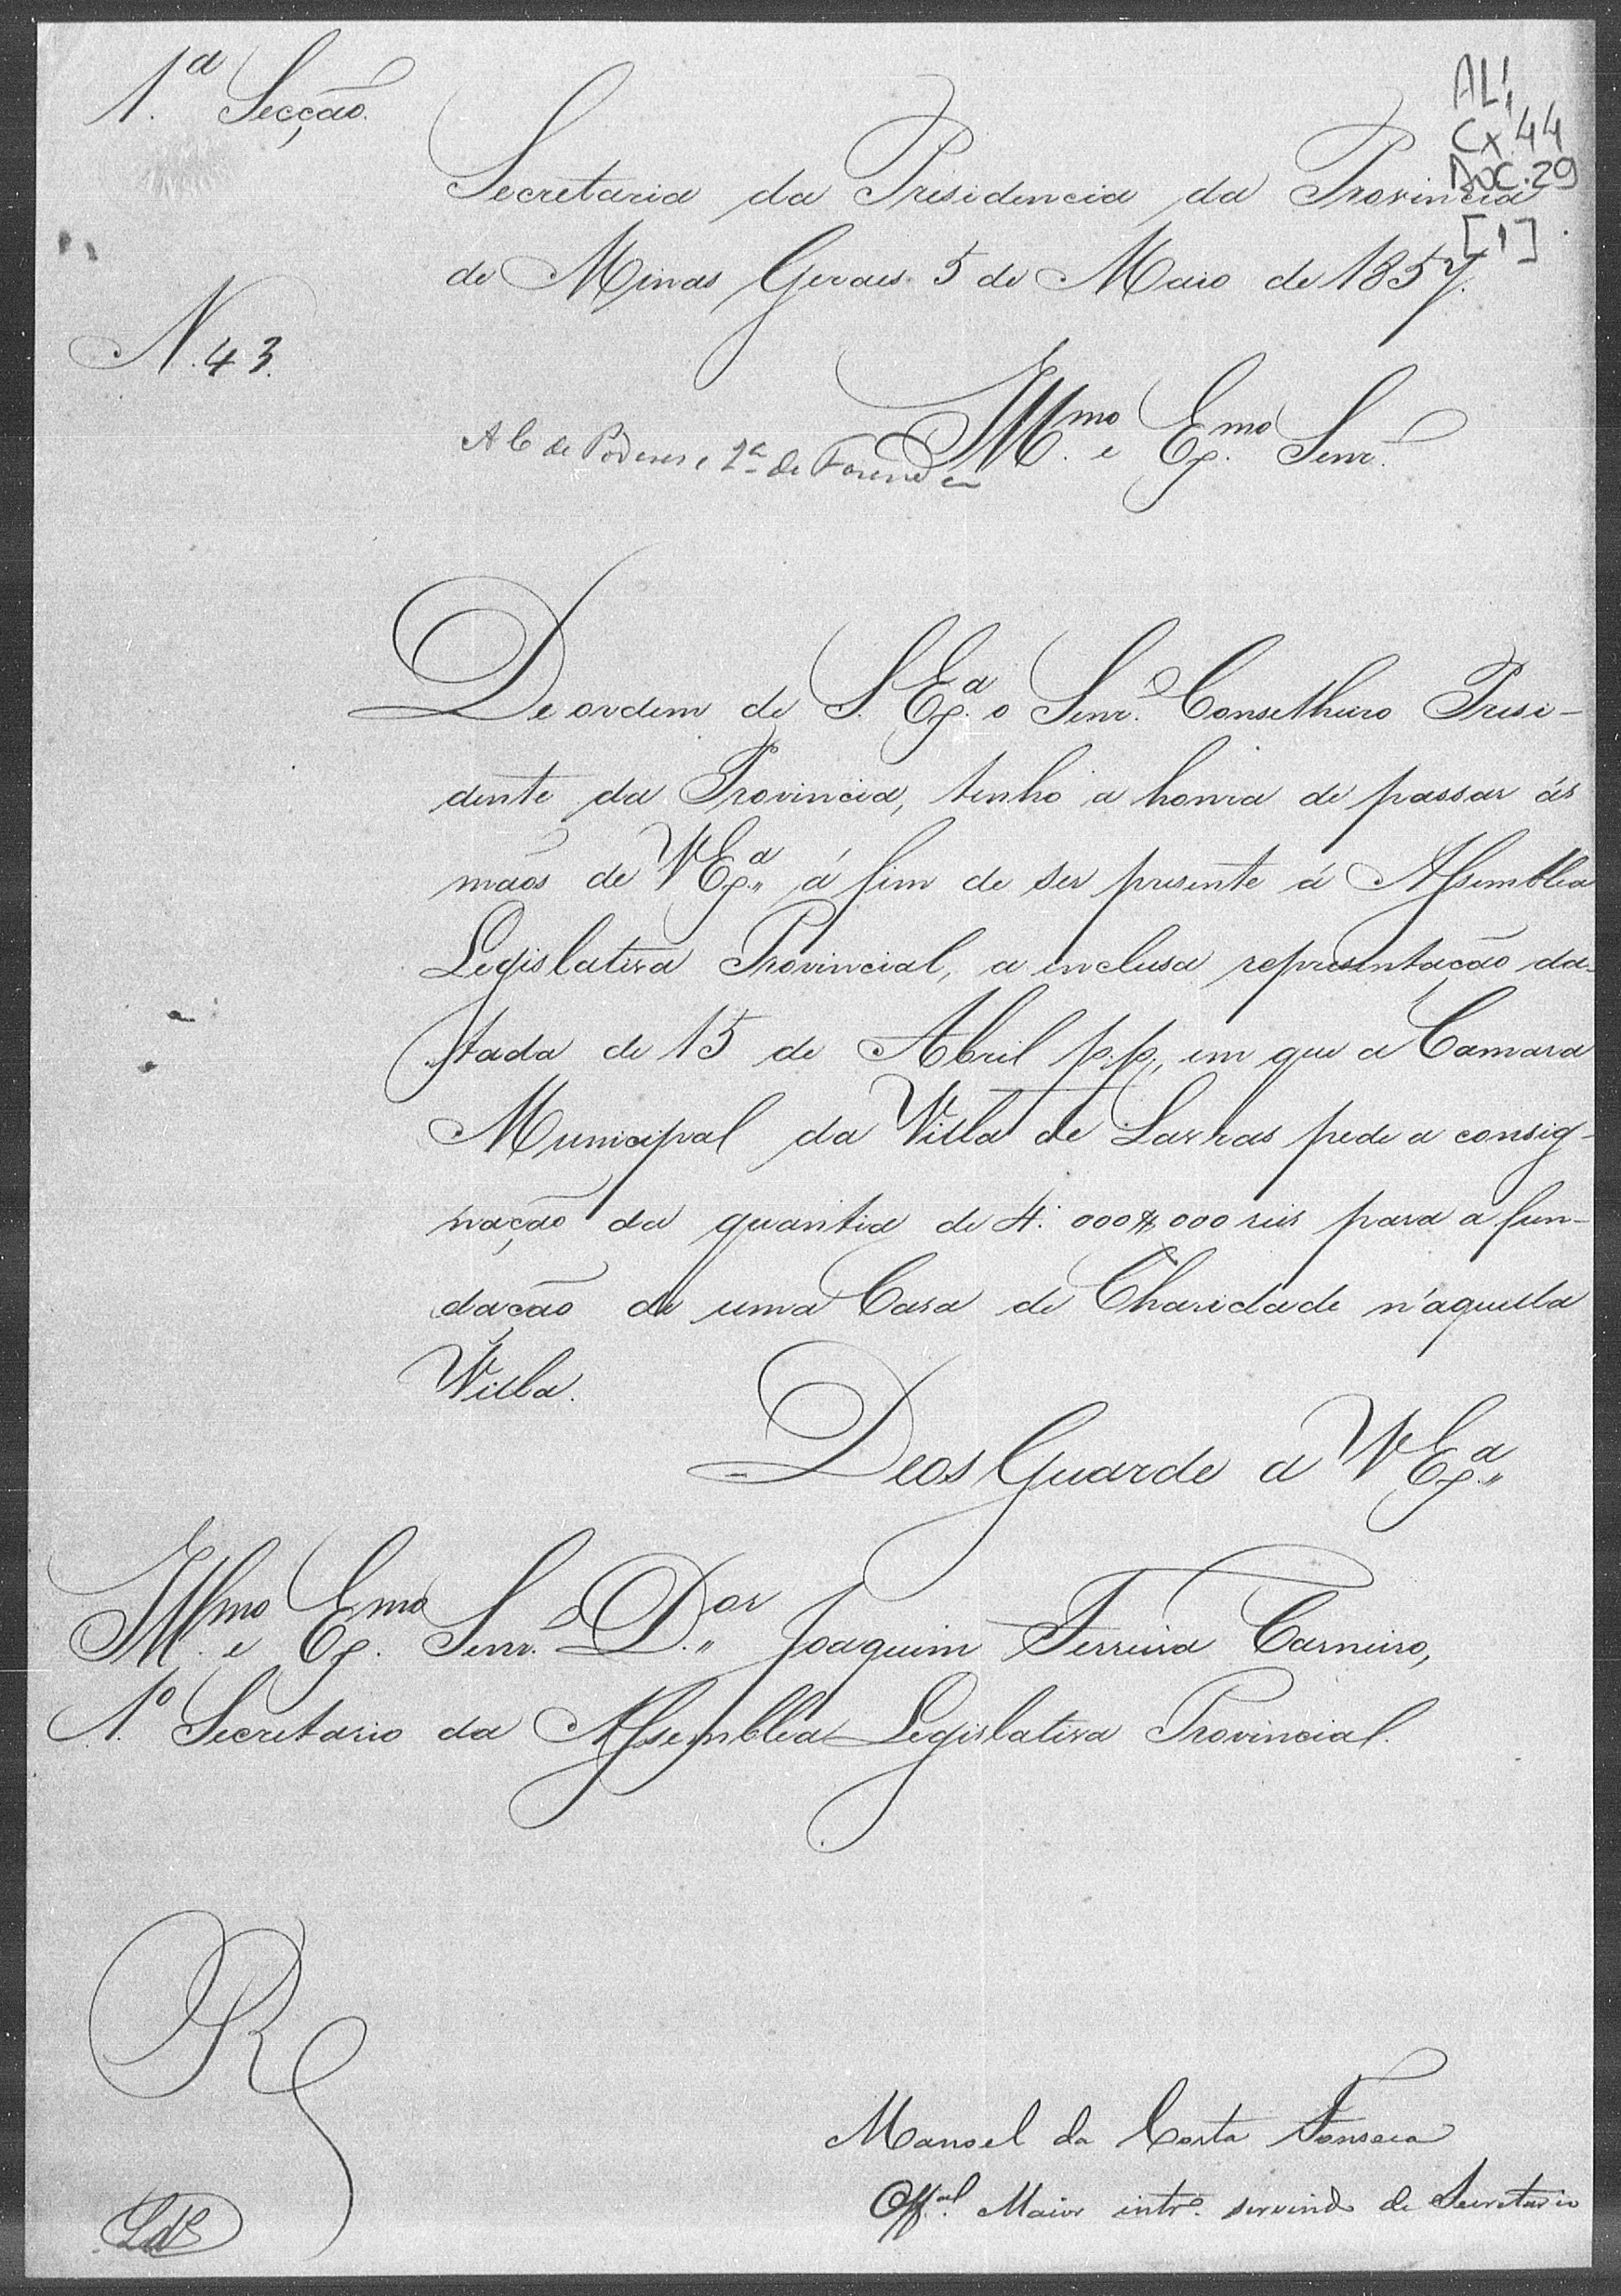 1.ª Secção.
AL1
Cx.44
DOC.29
[1]
Secretaria da Presidencia da Provincia
de Minas Geraes 5 de Maio de 1857.
N. 43.
Ill.mo e Ex.mo Senr.
A C de Poderes e 2ª de Fazenda
De ordem de S. Ex.ª o Senr. Conselheiro Presi-
dente da Provincia, tenho a honra de passar ás
mãos de V Ex.ª á fim de ser presente á Assemblea
Legislativa Provincial, a inclusa representação da-
tada de 15 de Abril p.p., em que a Camara
Municipal da Villa de Lavras pede a consig-
nação da quantia de 4:000$000 reis para a fun-
dação de uma Casa de Charidade n'aquella
Villa.
Deos Guarde a V Ex.ª
Ill.mo e Ex.mo Senr. D.or Joaquim Ferreira Carneiro,
1.º Secretario da Assemblea Legislativa Provincial.
R
Manoel da Costa Fonseca
Off.al Maior intr.º servindo de Secretario